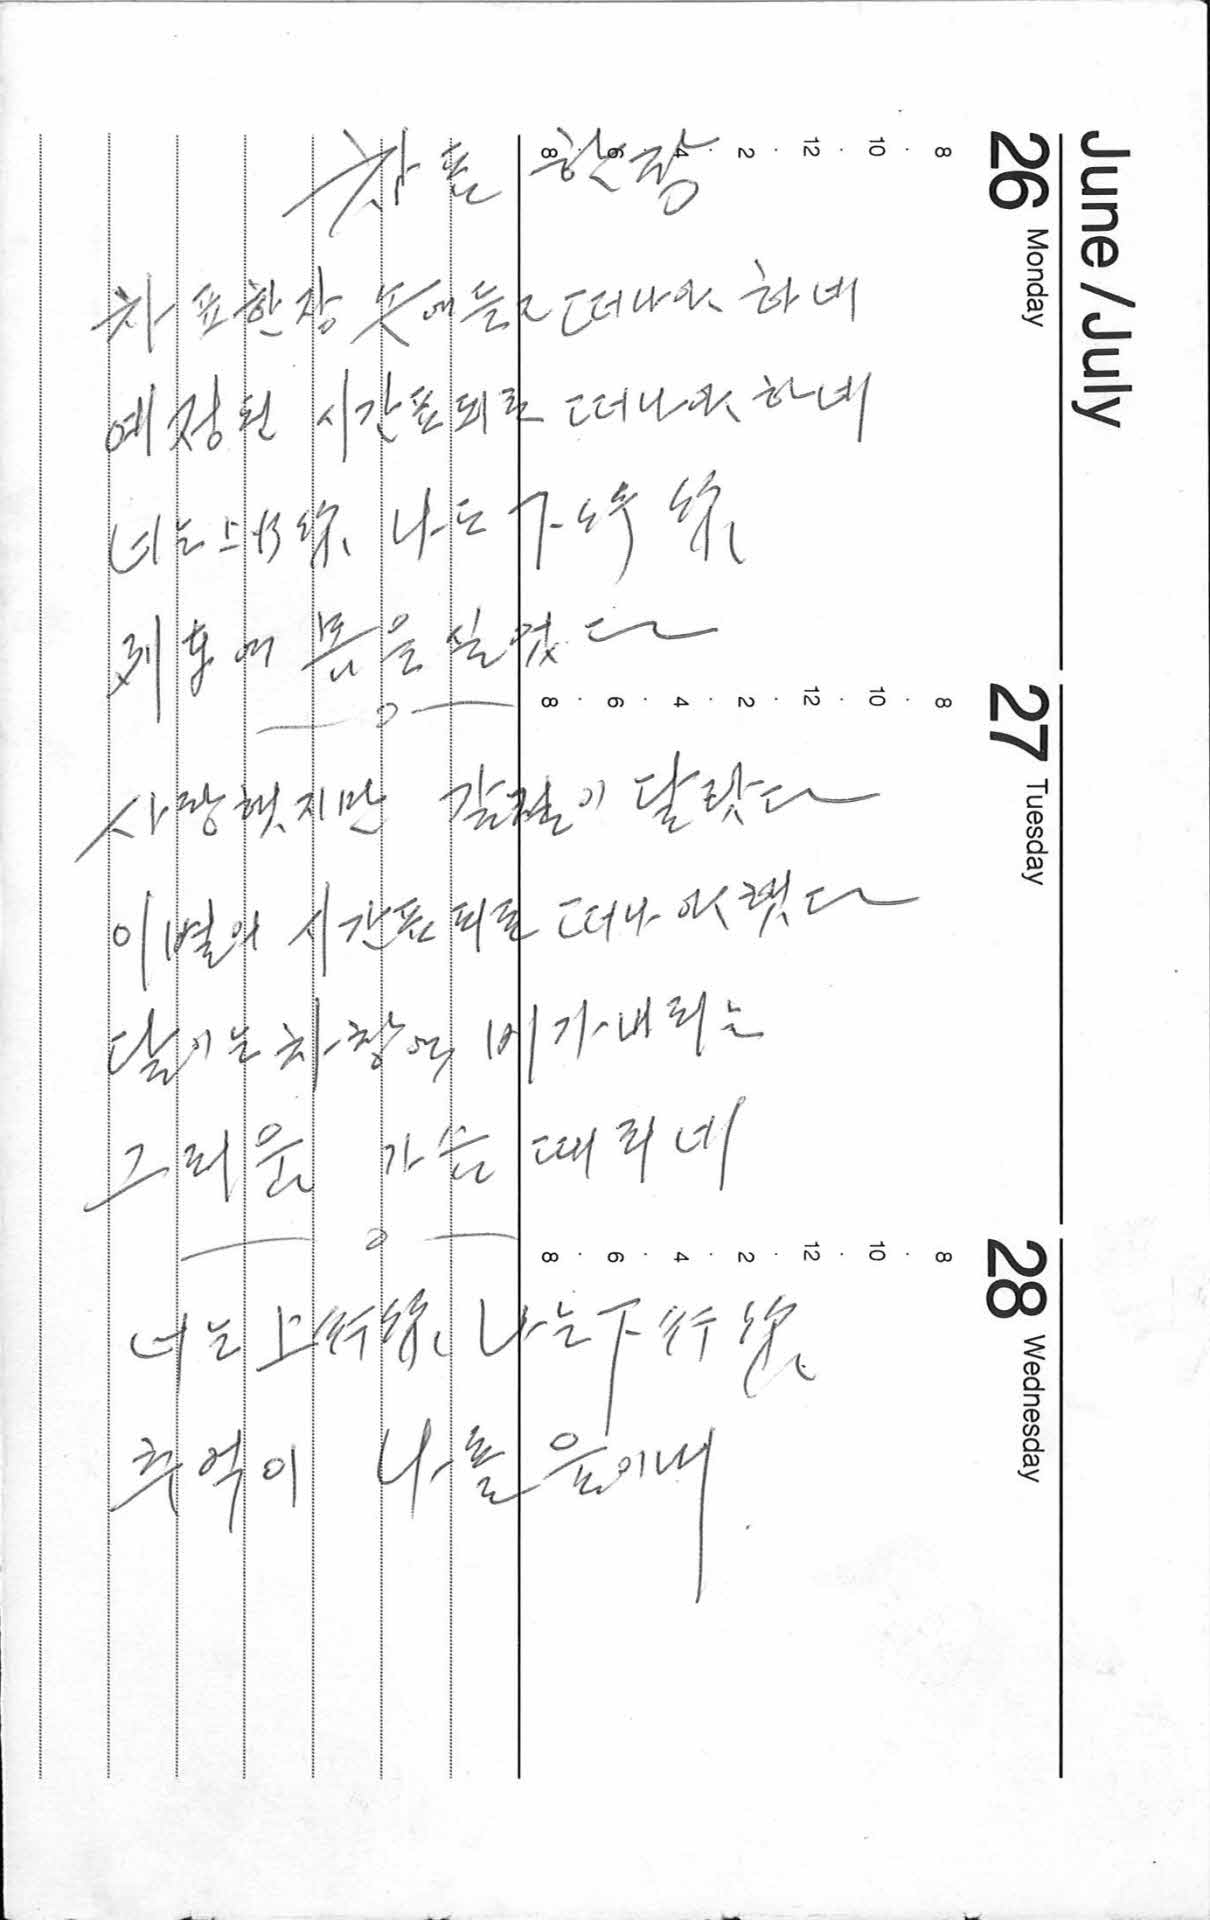 차표 한장
차표 한장 손에 들고 떠나야 하네
예정된 시간표 되로 떠나야 하네
너는 上行線, 나는 下行線
열차에 몸을 실었다
사랑했지만 갈길이 달랐다
이별의 시간표 되로 떠나야 했다
달리는 차창에 비가 내리는
그리운 가슴 때리네
너는 上行線, 나는 下行線
추억이 나를 울이네
June / July
26 Monday
8 · 10 · 12 · 2 · 4 · 6 · 8
27 Tuesday
8 · 10 · 12 · 2 · 4 · 6 · 8
28 Wednesday
8 · 10 · 12 · 2 · 4 · 6 · 8